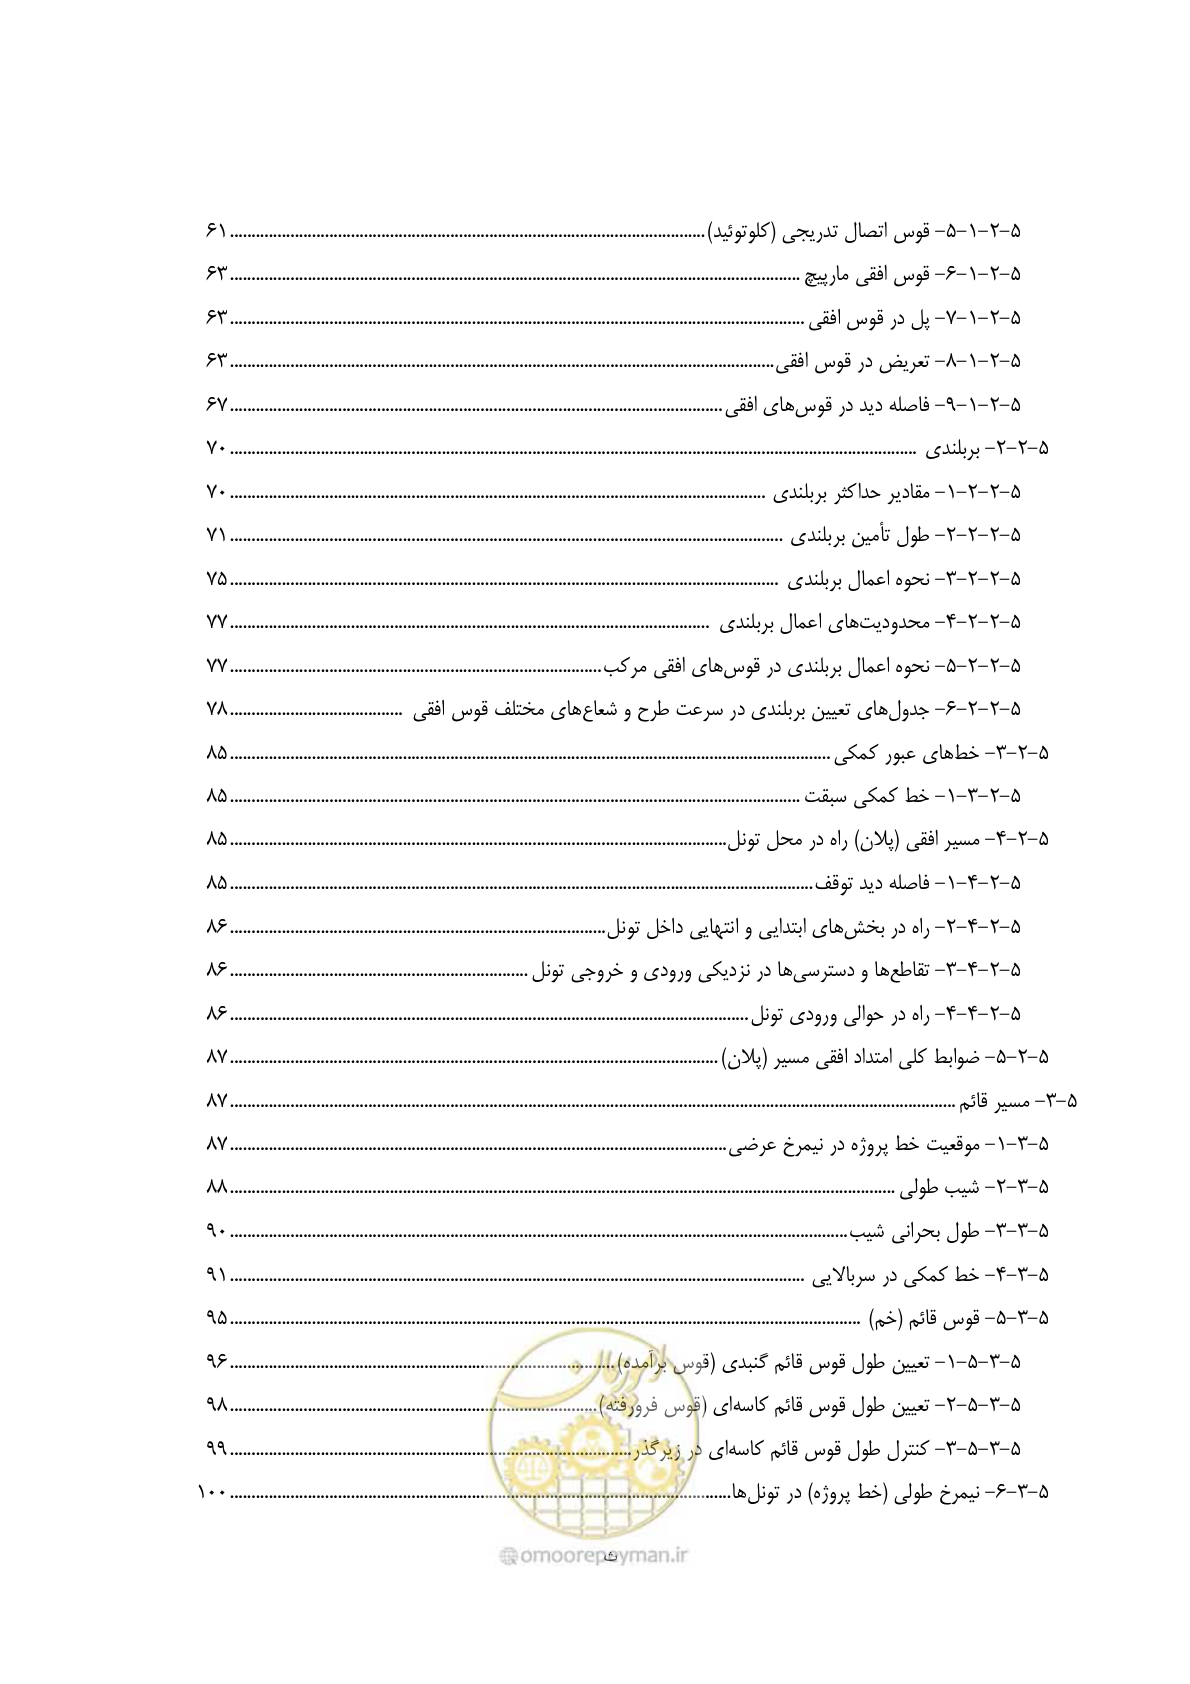 ۵-۲-۱-۵- قوس اتصال تدریجی (کلوتوئید) ۶۱
۵-۲-۱-۶- قوس افقی مارپیچ ۶۳
۵-۲-۱-۷- پل در قوس افقی ۶۳
۵-۲-۱-۸- تعریض در قوس افقی ۶۳
۵-۲-۱-۹- فاصله دید در قوس‌های افقی ۶۷
۵-۲-۲- بربلندی ۷۰
۵-۲-۲-۱- مقادیر حداکثر بربلندی ۷۰
۵-۲-۲-۲- طول تأمین بربلندی ۷۱
۵-۲-۲-۳- نحوه اعمال بربلندی ۷۵
۵-۲-۲-۴- محدودیت‌های اعمال بربلندی ۷۷
۵-۲-۲-۵- نحوه اعمال بربلندی در قوس‌های افقی مرکب ۷۷
۵-۲-۲-۶- جدول‌های تعیین بربلندی در سرعت طرح و شعاع‌های مختلف قوس افقی ۷۸
۵-۲-۳- خط‌های عبور کمکی ۸۵
۵-۲-۳-۱- خط کمکی سبقت ۸۵
۵-۲-۴- مسیر افقی (پلان) راه در محل تونل ۸۵
۵-۲-۴-۱- فاصله دید توقف ۸۵
۵-۲-۴-۲- راه در بخش‌های ابتدایی و انتهایی داخل تونل ۸۶
۵-۲-۴-۳- تقاطع‌ها و دسترسی‌ها در نزدیکی ورودی و خروجی تونل ۸۶
۵-۲-۴-۴- راه در حوالی ورودی تونل ۸۶
۵-۲-۵- ضوابط کلی امتداد افقی مسیر (پلان) ۸۷
۵-۳- مسیر قائم ۸۷
۵-۳-۱- موقعیت خط پروژه در نیمرخ عرضی ۸۷
۵-۳-۲- شیب طولی ۸۸
۵-۳-۳- طول بحرانی شیب ۹۰
۵-۳-۴- خط کمکی در سربالایی ۹۱
۵-۳-۵- قوس قائم (خم) ۹۵
۵-۳-۵-۱- تعیین طول قوس قائم گنبدی (قوس برآمده) ۹۶
۵-۳-۵-۲- تعیین طول قوس قائم کاسه‌ای (قوس فرورفته) ۹۸
۵-۳-۵-۳- کنترل طول قوس قائم کاسه‌ای در زیرگذر ۹۹
۵-۳-۶- نیمرخ طولی (خط پروژه) در تونل‌ها ۱۰۰
امور پیمان
@omoorepeyman.ir
ث